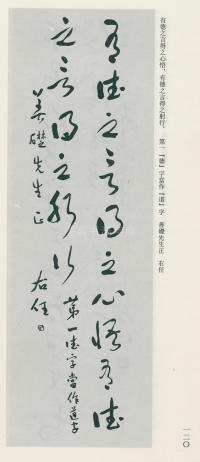 有德之言得之心悟，有德之言得之躬行。　第一『德』字當作『道』字　善礎先生正　右任
有德之言得之心悟有德
之言得之躬行　第一德字當作道字
善礎先生正　右任
一二〇